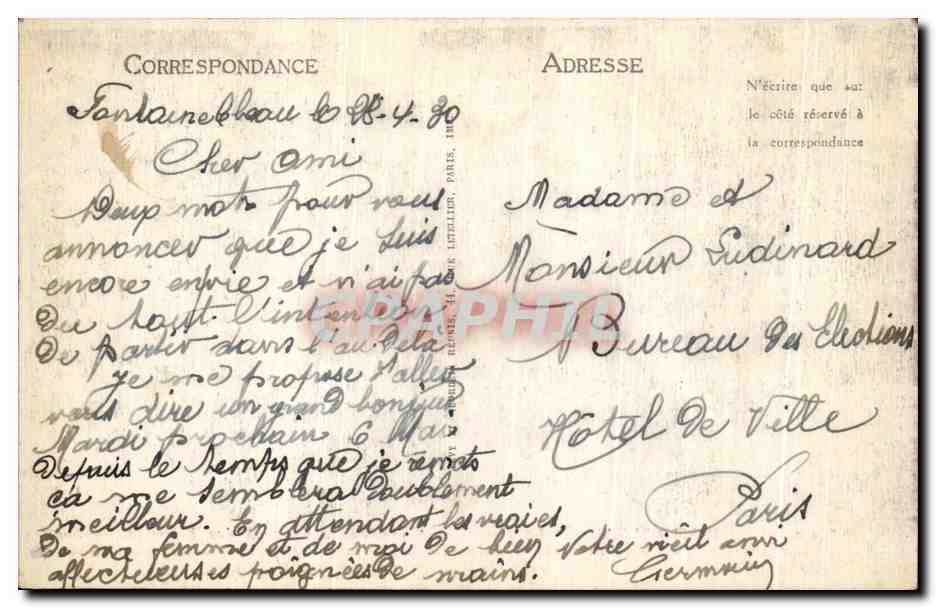 CORRESPONDANCE
Fontainebleau le 28-4-30
Cher ami
Deux mots pour vous
annoncer que je suis
encore en vie et n'ai pas
du tout l'intention
de partir dans l'au Delà
Je me propose d'aller
vous dire un grand bonjour
Mardi prochain 6 Mai
Depuis le temps que je remets
ça me semblera doublement
meilleur. En attendant les vraies,
De ma femme et de moi de
affectueuses poignées de mains.
Votre vieil ami
Germain
LETELLIER, PARIS
ADRESSE
N'écrire que sur
le côté réservé à
la correspondance
Madame et
Monsieur Ludinard
Bureau des Elections
Hôtel de Ville
Paris
CPAPHIL